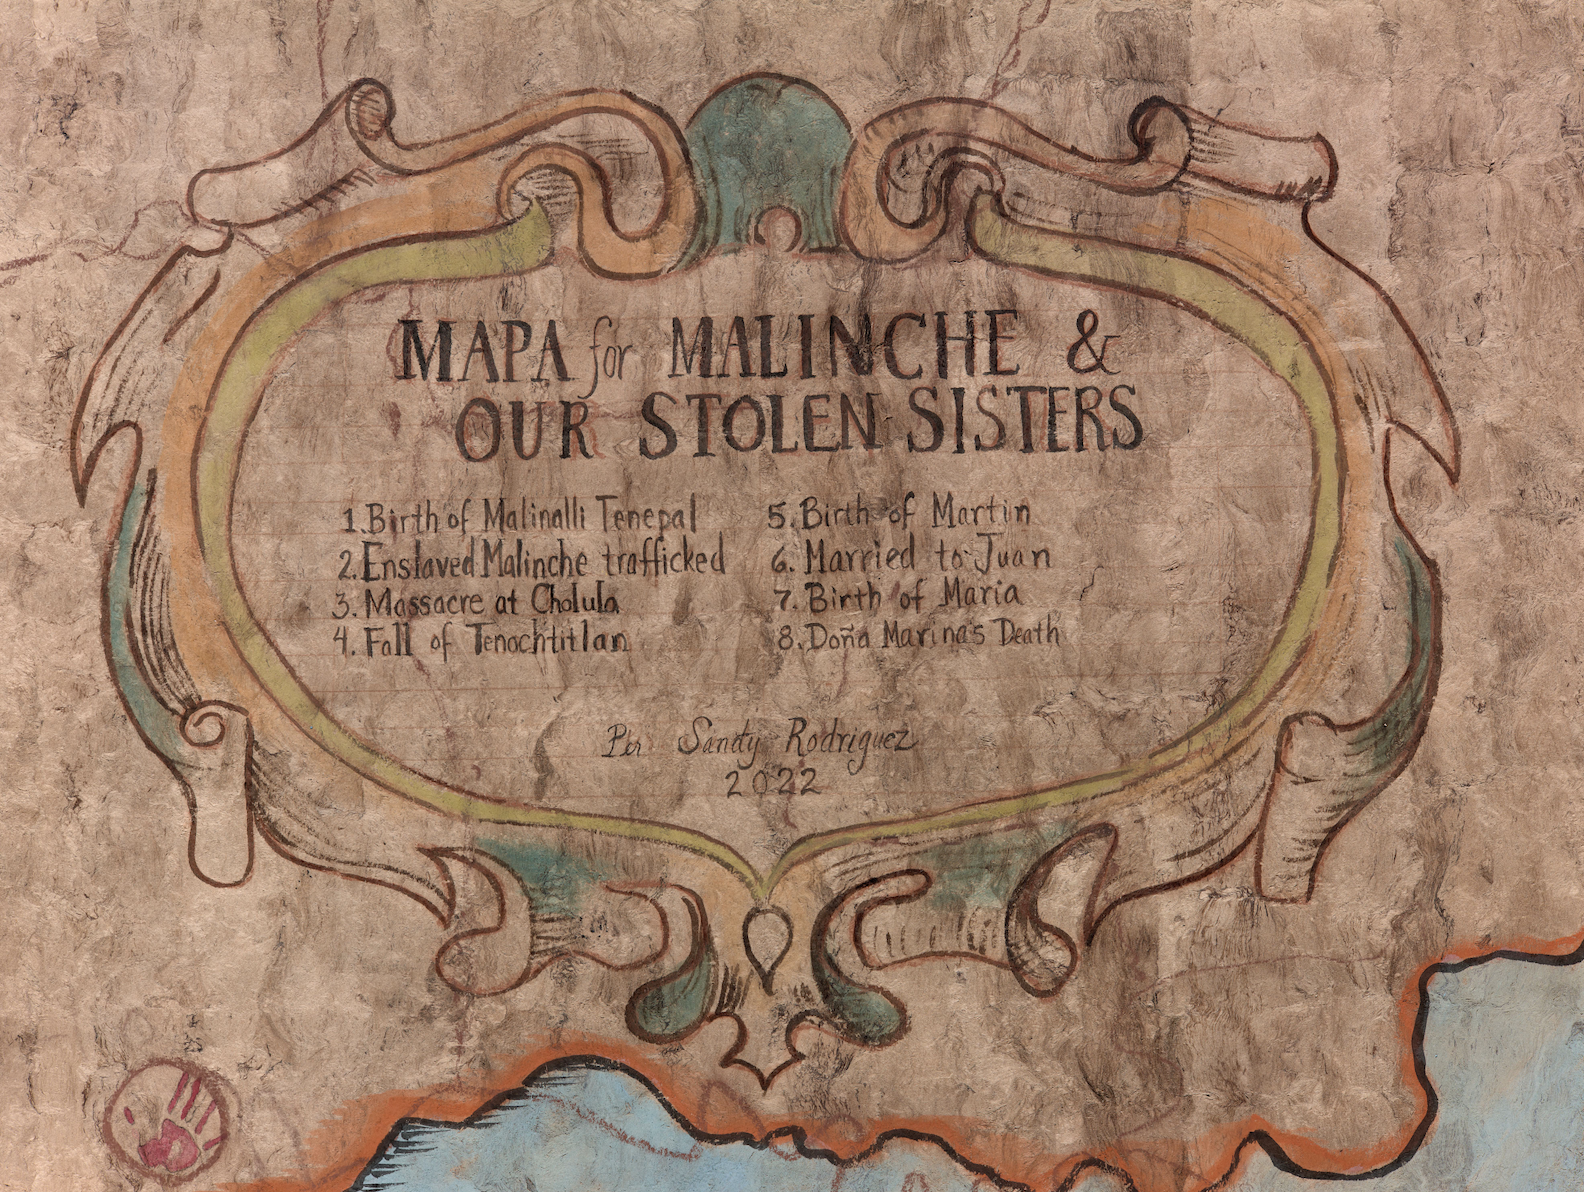 MAPA for MALINCHE &
OUR STOLEN SISTERS
1. Birth of Malinalli Tenepal
2. Enslaved Malinche trafficked
3. Massacre at Cholula
4. Fall of Tenochtitlan
5. Birth of Martin
6. Married to Juan
7. Birth of Maria
8. Doña Marina's Death
Per Sandy Rodriguez
2022